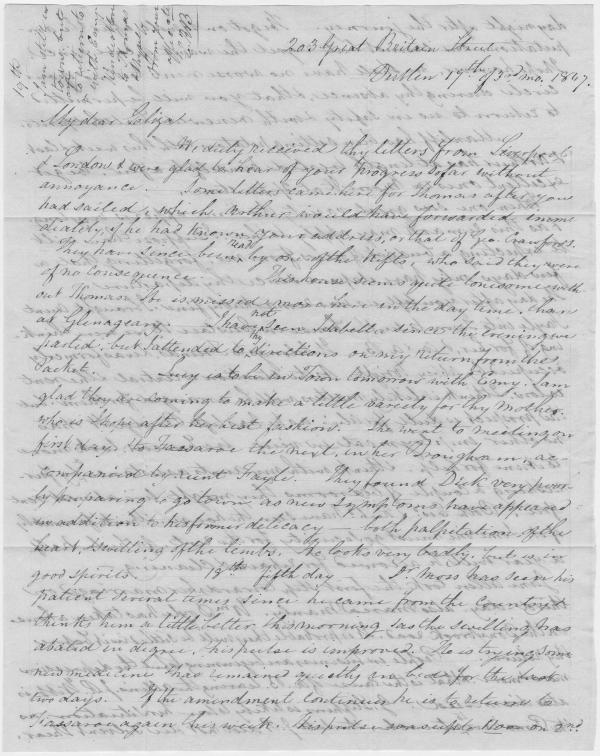 203 Great Britain Street
Dublin 19th of 3rd mo. 1847.
My dear Eliza
We duly received thy letters from Liverpool
& London & were glad to hear of your progress so far without
annoyance. Some letters came here for Thomas after you
had sailed, which Arthur would have forwarded imme
diately, if he had known your address, or that of Jos. Crawford.
They have since been read by one of the , who said they were
of no consequence. This house seems quite lonesome with
out Thomas, he is missed more here in the day time, than
at Glenageary. I have not seen Isabella since the evening we
parted, but I attended to thy directions on my return from the
Packet. Lucy is to be in Town tomorrow with Emy. I am
glad they are coming to make a little variety for thy Mother,
who is so so after her best fashion. She went to meeting on
first day & to Fassaroe the next, in her Brougham, ac-
companied by Aunt Fayle. They found Dick very poor-
ly preparing to go to town as new symptoms have appeared
in addition to his former delicacy — both palpitation of the
heart, & swelling of the limbs. He looks very badly, but is in
good spirits. 18th fifth day — Dr Moss has seen his
patient several times since he came from the Country &
thinks him a little better this morning, as the swelling has
abated in degree, & his pulse is improved. He is trying some
new medicine & has remained quietly in bed for the last
two days. If the amendment continues he is to return to
Fassaroe again this week. His pulse was up to 140 on 2nd